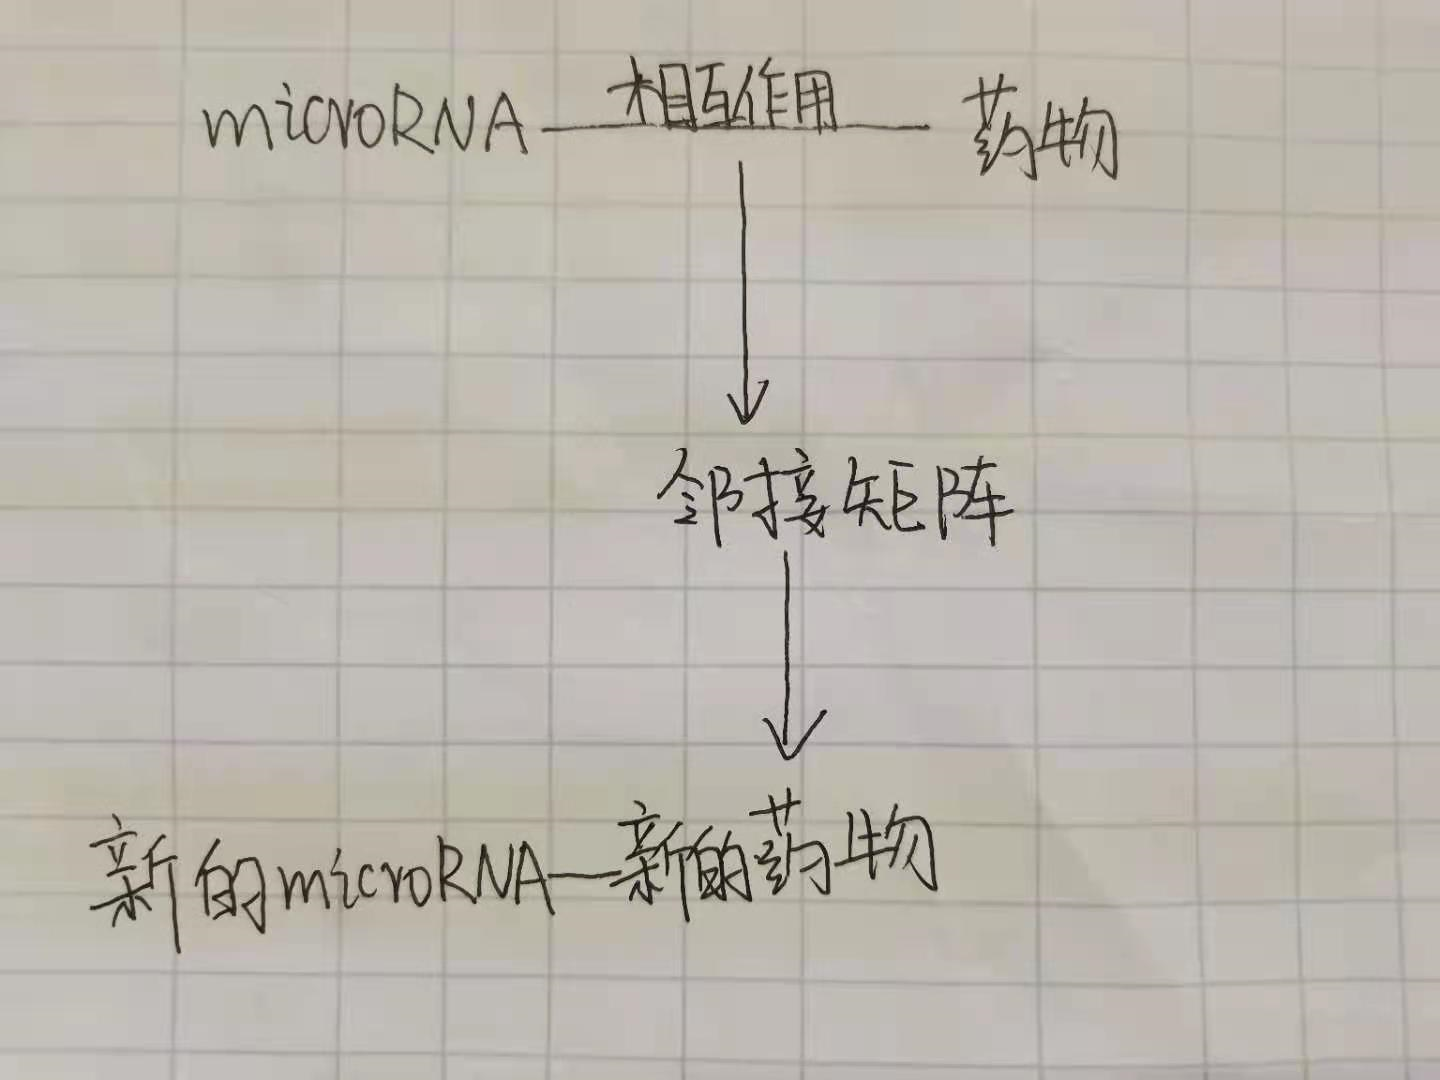 microRNA 相互作用 药物
邻接矩阵
新的microRNA—新的药物